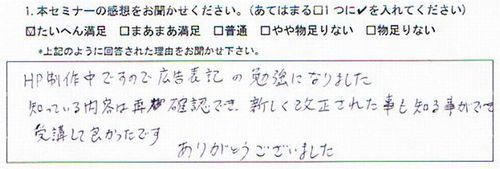 1. 本セミナーの感想をお聞かせください。（あてはまる□1つに✔を入れてください）
☑たいへん満足 □まあまあ満足 □普通 □やや物足りない □物足りない
*上記のように回答された理由をお聞かせ下さい。
HP制作中ですので広告表記の勉強になりました
知っている内容は再確認でき、新しく改正された事も知る事ができ
受講して良かったです
ありがとうございました